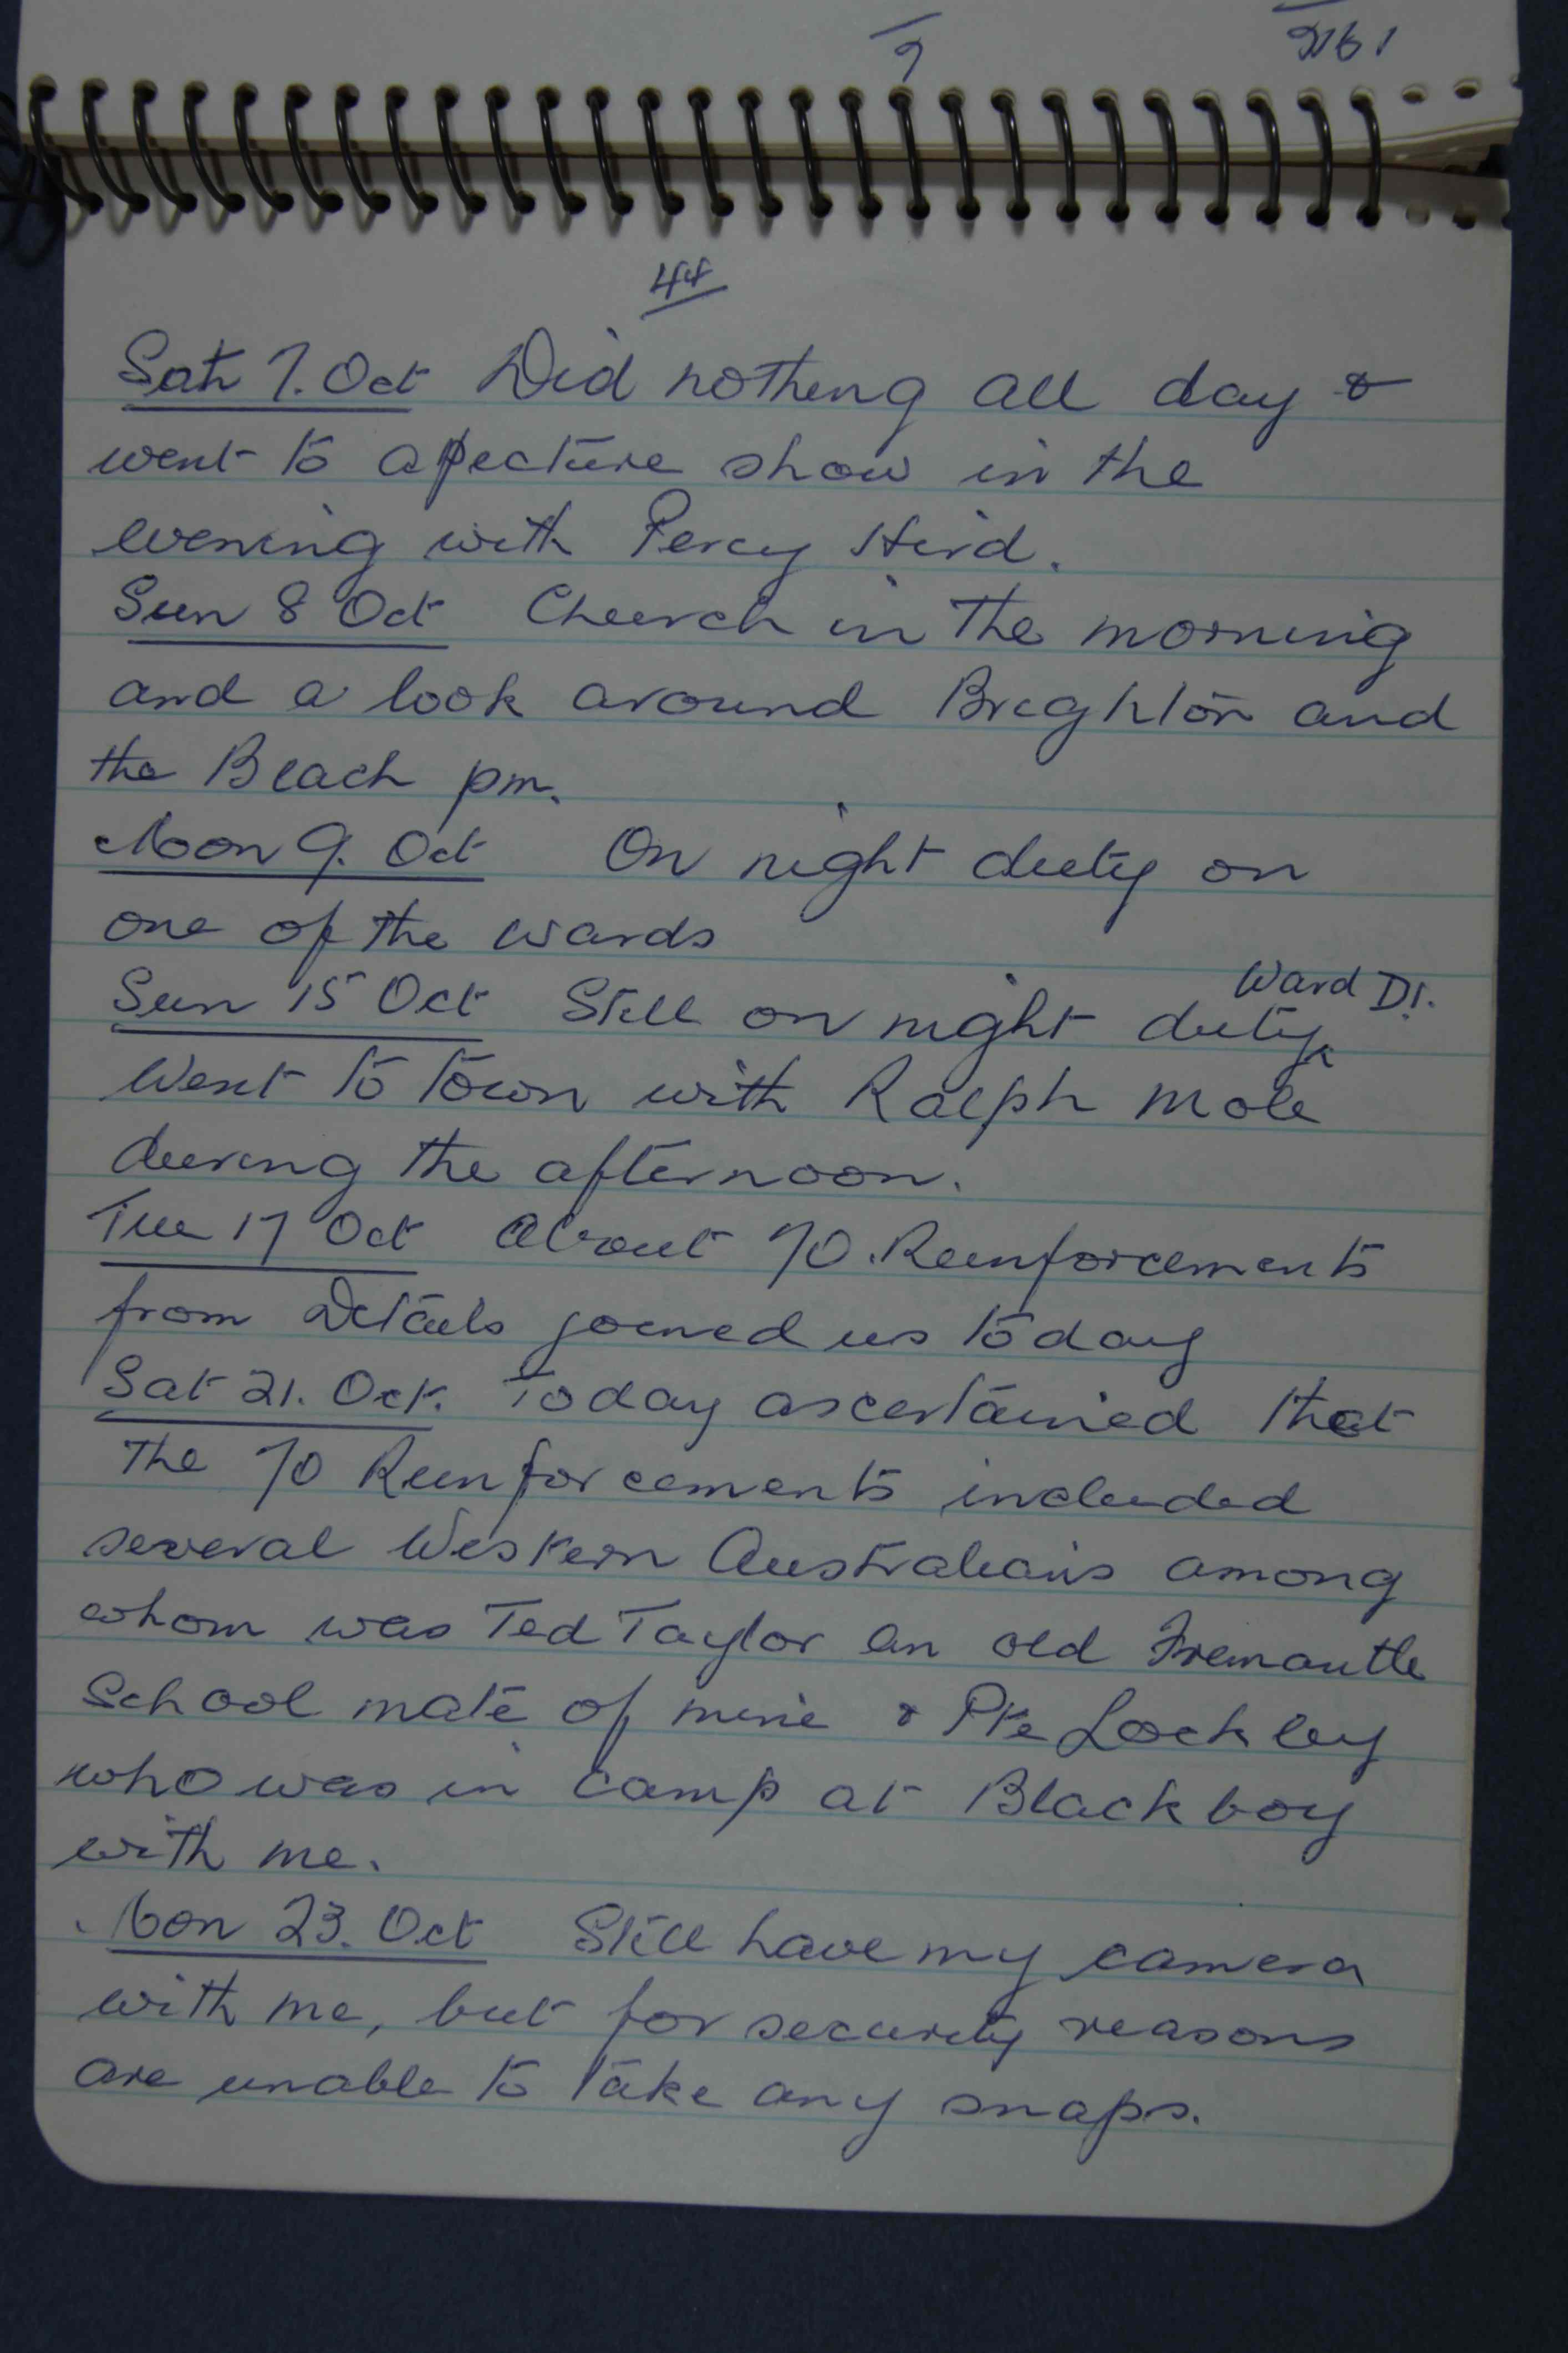 44
Sat 7. Oct Did nothing all day &
went to a picture show in the
evening with Percy Hird.
Sun 8 Oct Church in the morning
and a look around Brighton and
the Beach pm.
Moon 9. Oct On night duty on
one of the wards
Ward D1.
Sun 15 Oct Still on night duty
Went to town with Ralph Mole
during the afternoon.
Tue 17 Oct About 70 Reinforcements
from Details joined us today
Sat 21. Oct. Today ascertained that
the 70 Reinforcements included
several Western Australians among
whom was Ted Taylor an old Fremantle
School mate of mine & Pte Lockley
who was in camp at Blackboy
with me.
Mon 23. Oct Still have my camera
with me, but for security reasons
are unable to take any snaps.